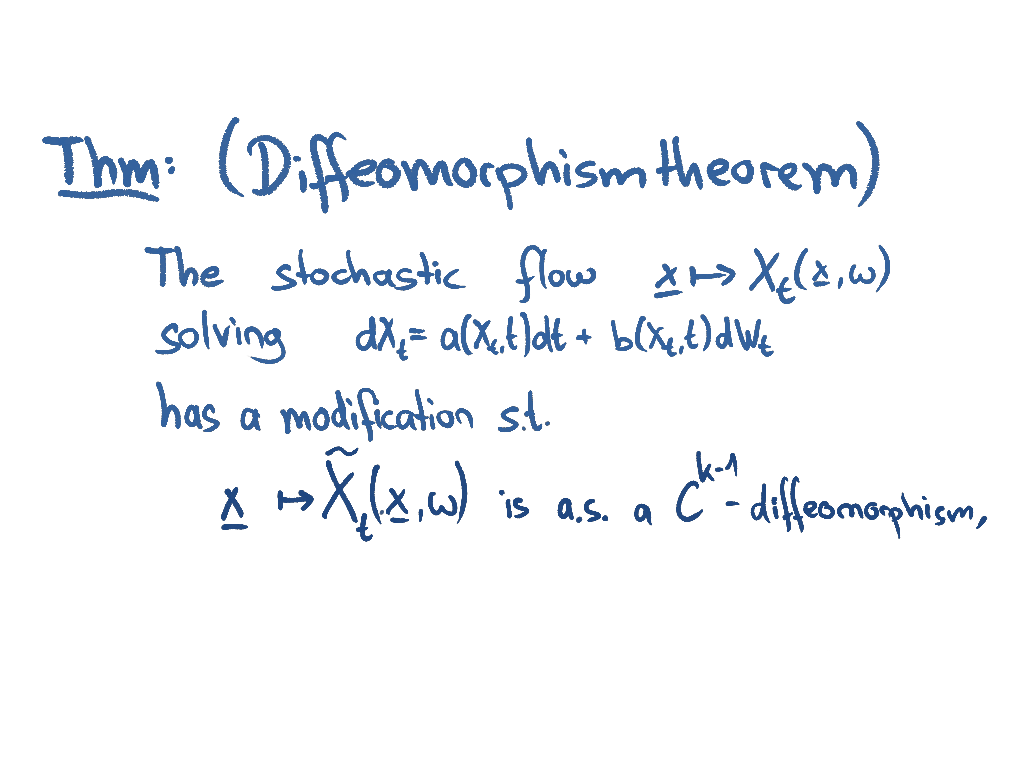 Thm: (Diffeomorphism theorem)
The stochastic flow x ↦ X_t(x, ω)
solving dX_t = a(X_t, t)dt + b(X_t, t)dW_t
has a modification s.t.
x ↦ X̃_t(x, ω) is a.s. a C^{k-1} - diffeomorphism,